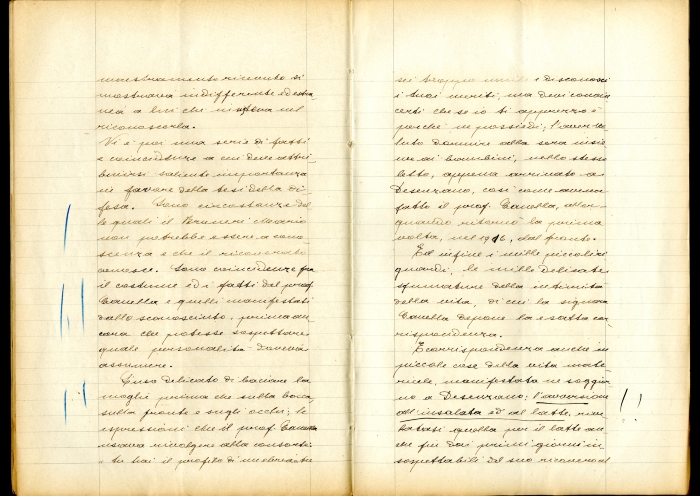 maestramento ricevuto si
mostrava indifferente ed estra-
nea a lui che nel
riconoscerla.
Vi è poi una serie di fatti
e coincidenze a cui deve attri-
buirsi saliente importanza
in favore della tesi della di-
fesa. Sono circostanze del-
le quali il Bruneri Mario
non potrebbe essere a cono-
scenza e che il ricoverato
conosce. Sono coincidenze fra
il costume ed i fatti del prof.
Canella e quelli manifestati
dallo sconosciuto, prima an-
cora che potesse sospettare
quale personalità doveva
assumere.
L'uso delicato di baciare la
moglie prima che sulla bocca
sulla fronte e sugli occhi; le
espressioni che il prof. Canella
usava rivolgere alla consorte:
- tu hai il profilo di
sei troppo umile e disconosci
i tuoi meriti, ma devi convin-
certi che se io ti apprezzo è
perchè ne possiedi; l'aver vo-
luto dormire alla sera insie-
me ai bambini, nello stesso
letto, appena arrivato a
Desenzano, così come aveva
fatto il prof. Canella, allor-
quando ritornò la prima
volta, nel 1916, dal fronte.
Ed infine i mille piccoli ri-
guardi, le mille delicate
sfumature della intimità
della vita, di cui la signora
Canella depone la esatta cor-
rispondenza.
E corrispondenza anche in
piccole cose della vita mate-
riale, manifestata in soggior-
no a Desenzano: l'avversione
all'insalata ed al latte, rive-
latasi quella per il latte an-
che fin dai primi giorni in-
sospettabili del suo ricovero al